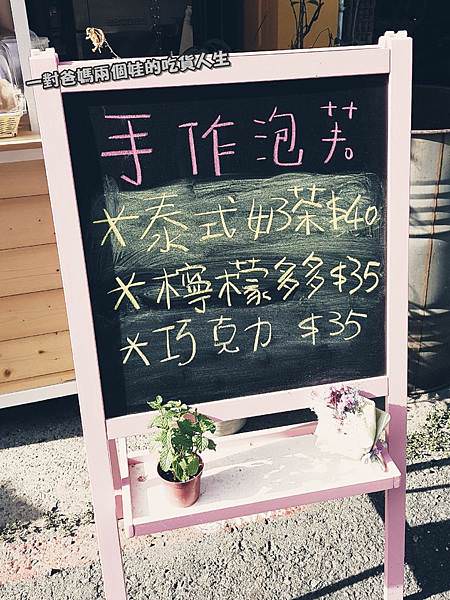 一對爸媽兩個娃的吃貨人生
手作泡芙
*泰式奶茶$40
*檸檬多多$35
*巧克力 $35